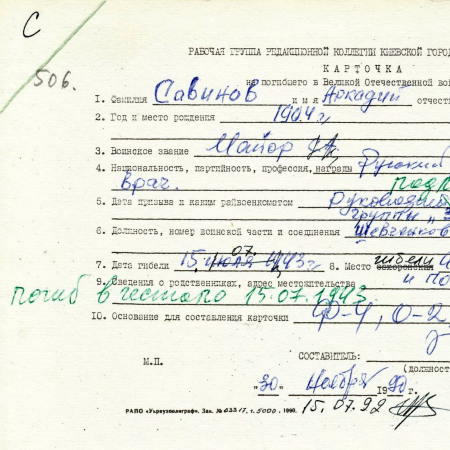 С
506.
РАБОЧАЯ ГРУППА РЕДАКЦИОННОЙ КОЛЛЕГИИ КИЕВСКОЙ ГОРО
КАРТОЧКА
на погибшего в Великой Отечественной вой
1. Фамилия Савинов имя Аркадий отчест
2. Год и место рождения 1904 г.
3. Воинское звание Майор
4. Национальность, партийность, профессия, награды Русский
врач. подп
5. Дата призыва и каким райвоенкоматом Руководитель
группы "З
6. Должность, номер воинской части и соединения Шевченков
7. Дата гибели 15 июля 07. 1943 г. 8. Место захоронения гибели
9. Сведения о родственниках, адрес местожительства и по
погиб в гестапо 15.07.1943
10. Основание для составления карточки Ф-4, О-2,
М.П. СОСТАВИТЕЛЬ:
(должност
"30" Ноября 1990 г.
РАПО «Укрвузполиграф». Зак. № 03317, т. 5000. 1990. 15.07.92